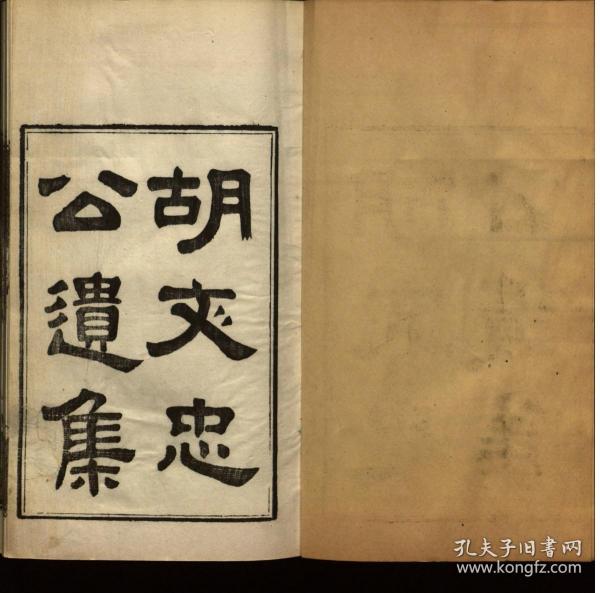 胡文忠
公遺集
孔夫子旧書网
www.kongfz.com